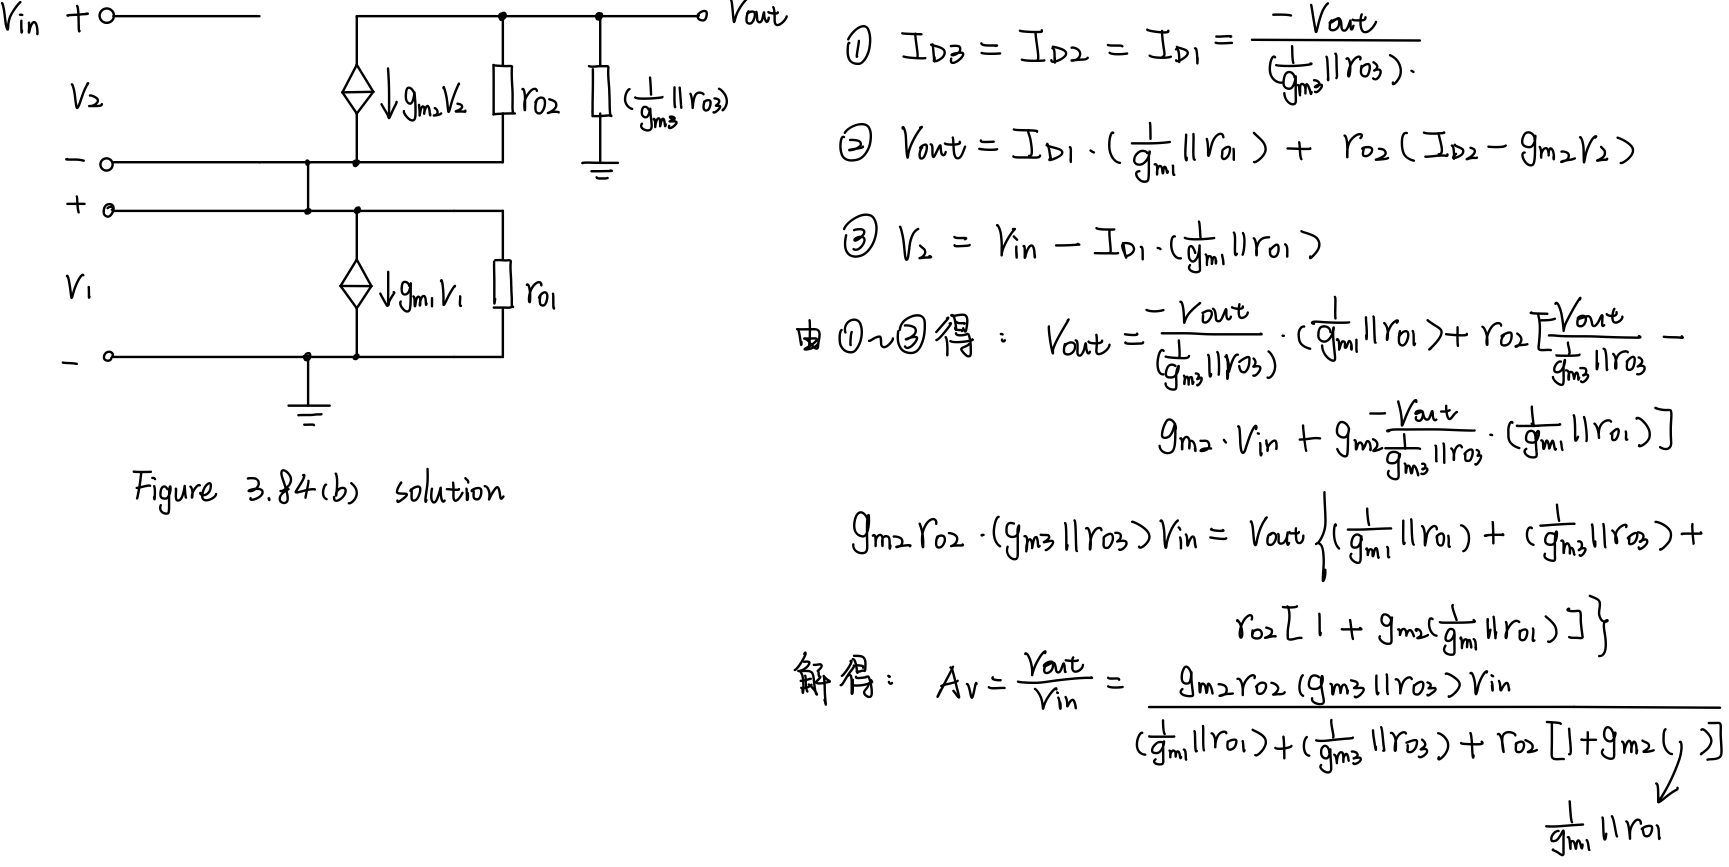 Vin + Vout
V2 ↓gm2V2 ro2 (1/gm3 || ro3)
-
+
V1 ↓gm1V1 ro1
-
Figure 3.84(b) solution
① ID3 = ID2 = ID1 = -Vout / (1/gm3 || ro3).
② Vout = ID1 · (1/gm1 || ro1) + ro2 (ID2 - gm2V2)
③ V2 = Vin - ID1 · (1/gm1 || ro1)
由①~③得: Vout = -Vout / (1/gm3 || ro3) · (1/gm1 || ro1) + ro2 [-Vout / 1/gm3 || ro3 -
gm2 · Vin + gm2 -Vout / 1/gm3 || ro3 · (1/gm1 || ro1)]
gm2 ro2 · (gm3 || ro3) Vin = Vout {(1/gm1 || ro1) + (1/gm3 || ro3) +
ro2 [1 + gm2(1/gm1 || ro1)]}
解得: Av = Vout / Vin = gm2 ro2 (gm3 || ro3) Vin / (1/gm1 || ro1) + (1/gm3 || ro3) + ro2 [1 + gm2( , )]
1/gm1 || ro1